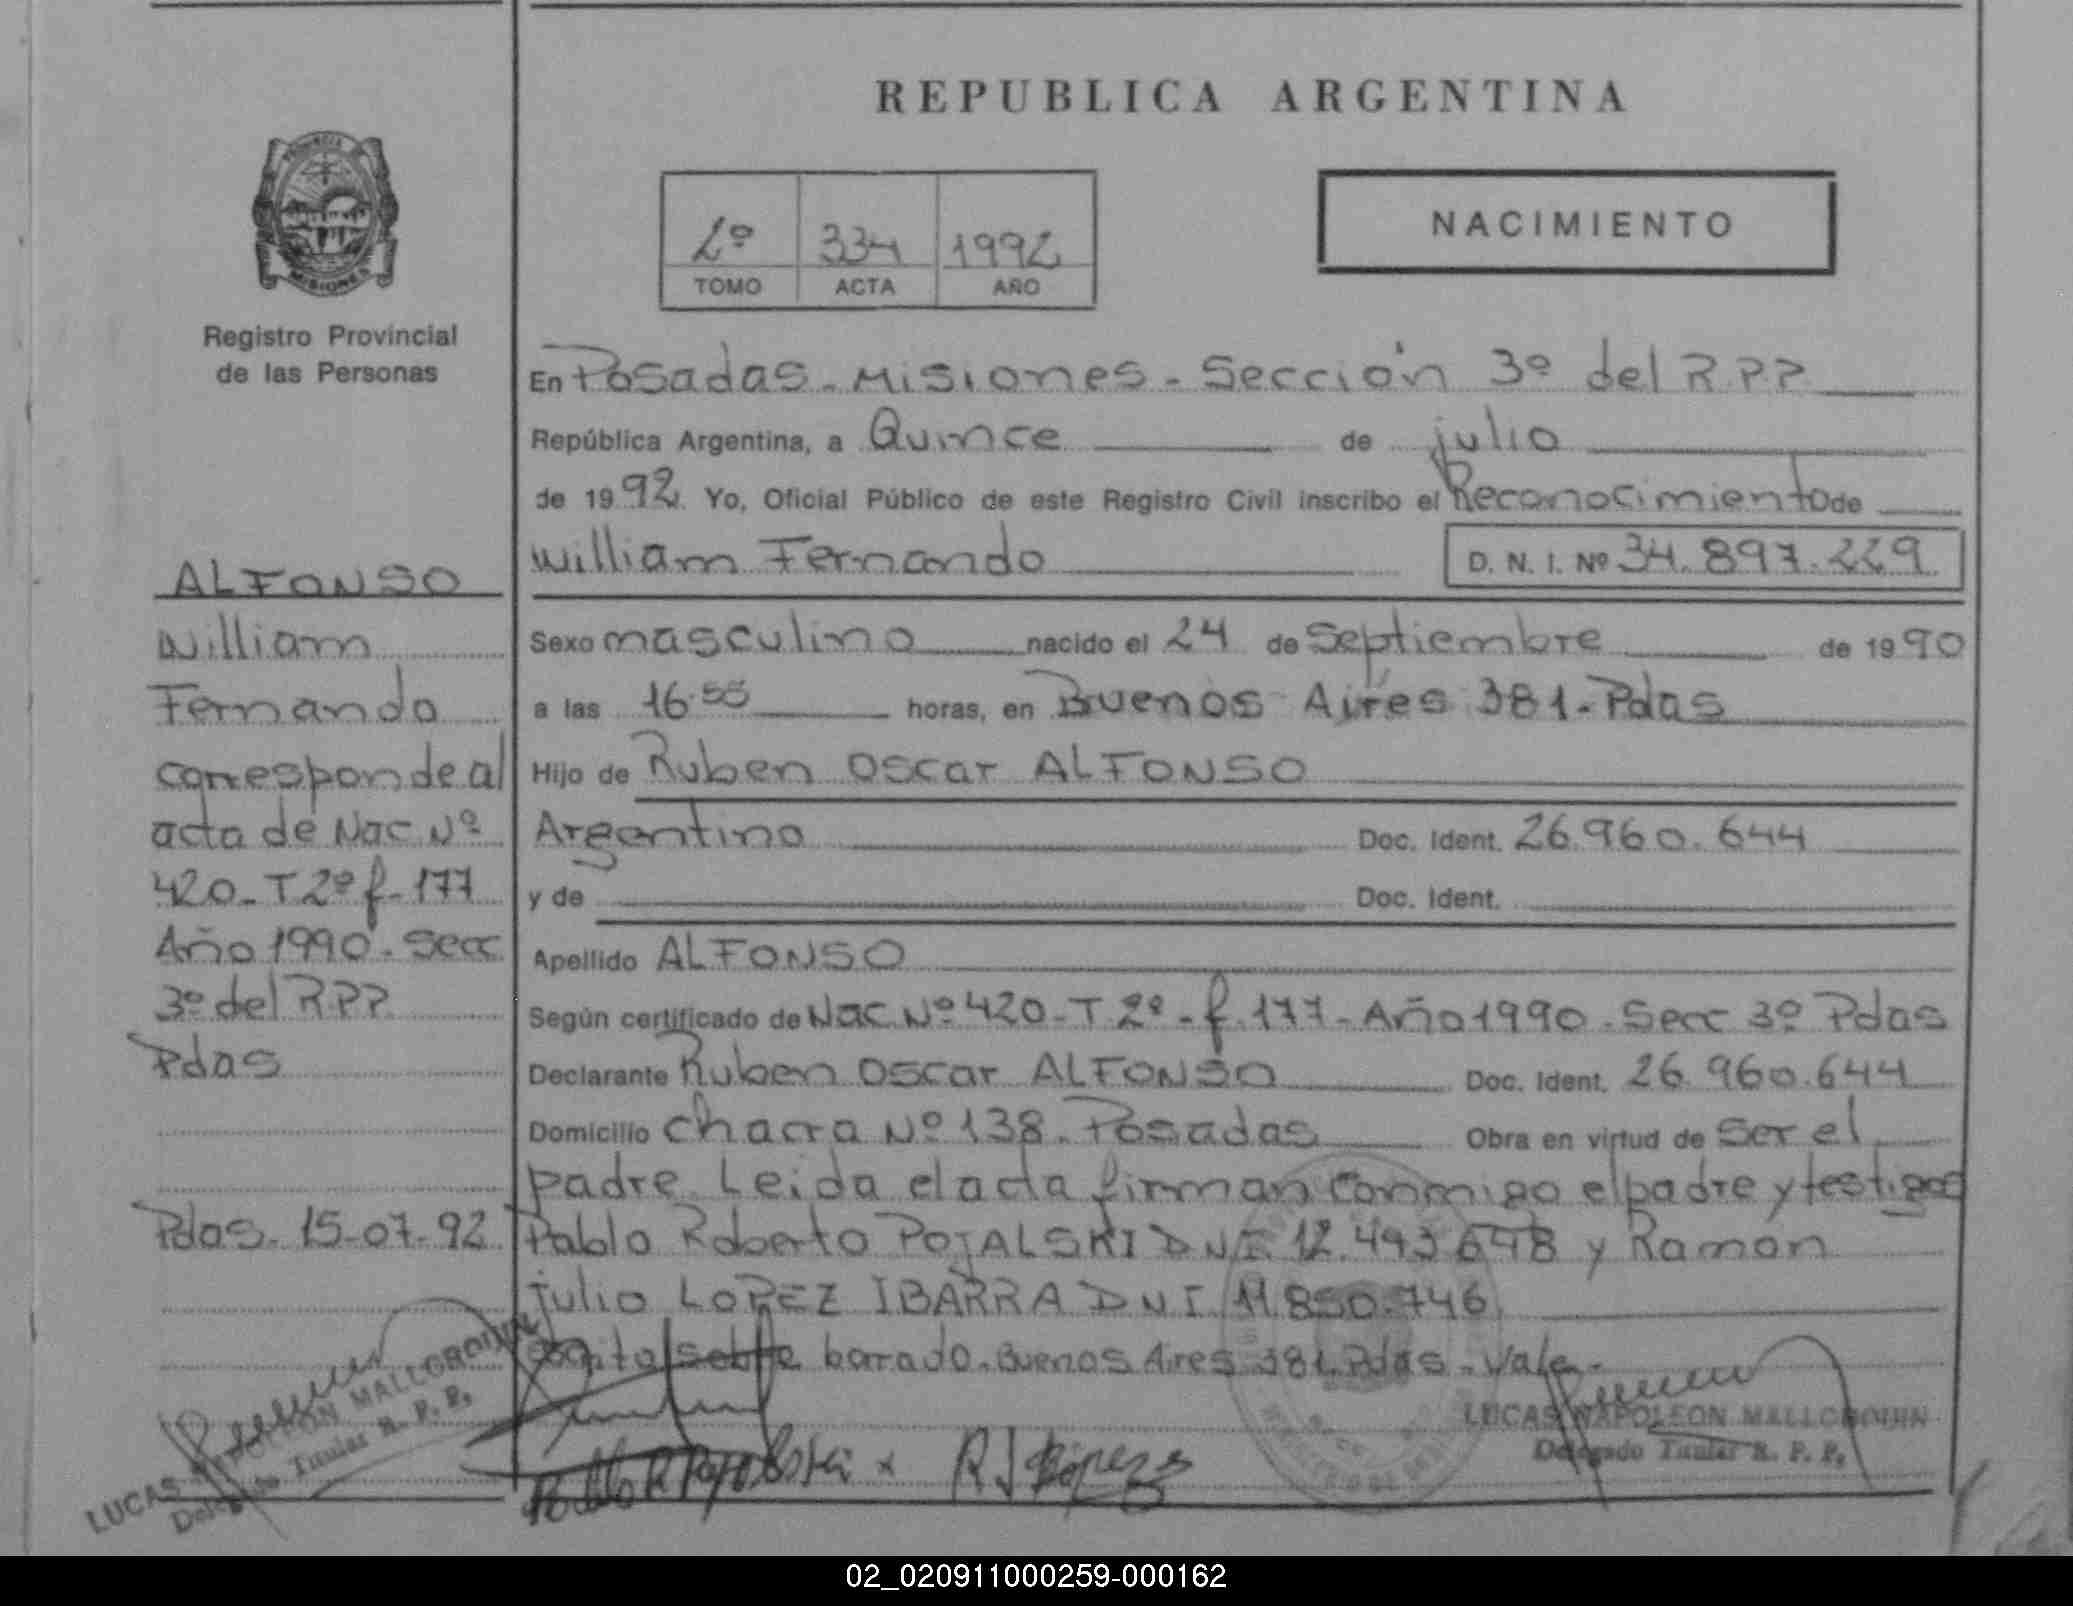 REPUBLICA ARGENTINA
PROVINCIA DE
MISIONES
Registro Provincial
de las Personas
2º 334 1992
TOMO ACTA AÑO
NACIMIENTO
ALFONSO
William
Fernando
corresponde al
acta de Nac. Nº
420 - T 2º f - 177
Año 1990 - Secc
3º del R.P.P.
Pdas
Pdas. 15-07-92
LUCAS NAPOLEON MALLORQUIN
Delegado Titular R. P. P.
En Posadas - Misiones - Sección 3º del R.P.P.
República Argentina, a Quince de julio
de 1992. Yo, Oficial Público de este Registro Civil inscribo el Reconocimiento de
William Fernando D. N. I. Nº 34.897.229
Sexo masculino nacido el 24 de Septiembre de 1990
a las 16:55 horas, en Buenos Aires 381 - Pdas
Hijo de Ruben Oscar ALFONSO
Argentino Doc. Ident. 26.960.644
y de Doc. Ident.
Apellido ALFONSO
Según certificado de Nac. Nº 420 - T. 2º - f. 177 - Año 1990 - Secc 3º Pdas
Declarante Ruben Oscar ALFONSO Doc. Ident. 26.960.644
Domicilio Chacra Nº 138. Posadas Obra en virtud de ser el
padre. Leida el acta firman conmigo el padre y testigos
Pablo Roberto POJALSKI DNI 12.493.648 y Ramón
julio LOPEZ IBARRA DNI 11.850.746
sobre borrado. Buenos Aires 381. Pdas - Vale -
R J López
LUCAS NAPOLEON MALLORQUIN
Delegado Titular R. P. P.
02_020911000259-000162